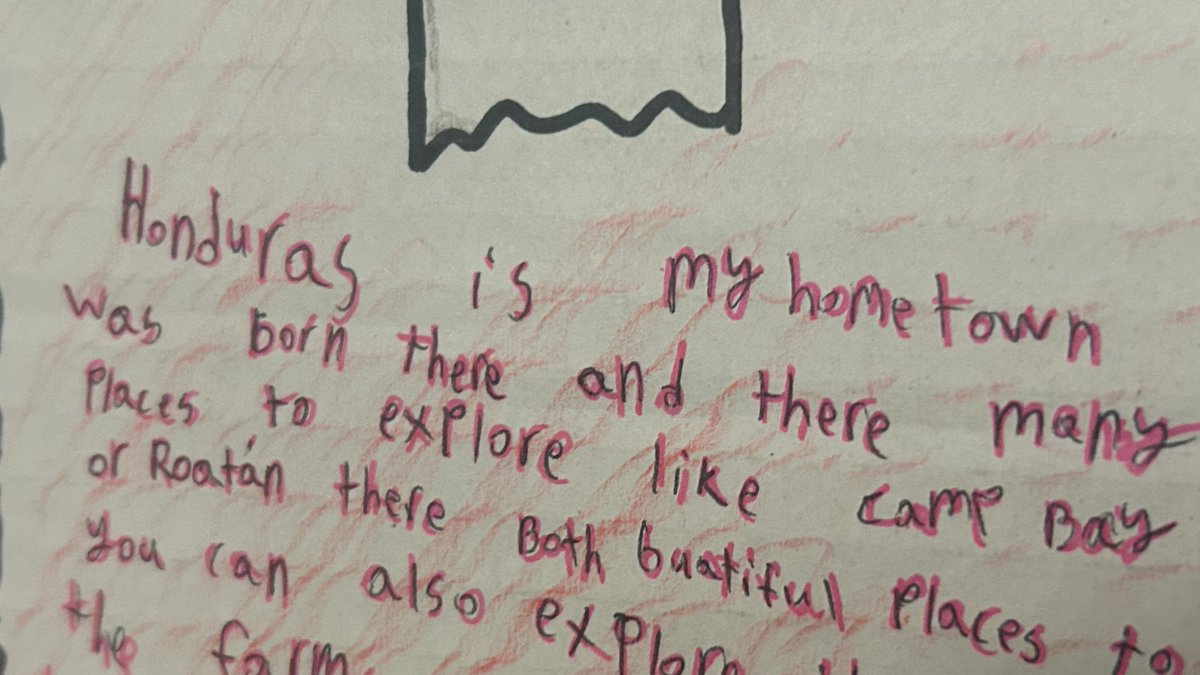 Honduras is my hometown
was born there and there many
Places to explore like camp Bay
or Roatán there Both buatiful Places to
you can also explore
the farm